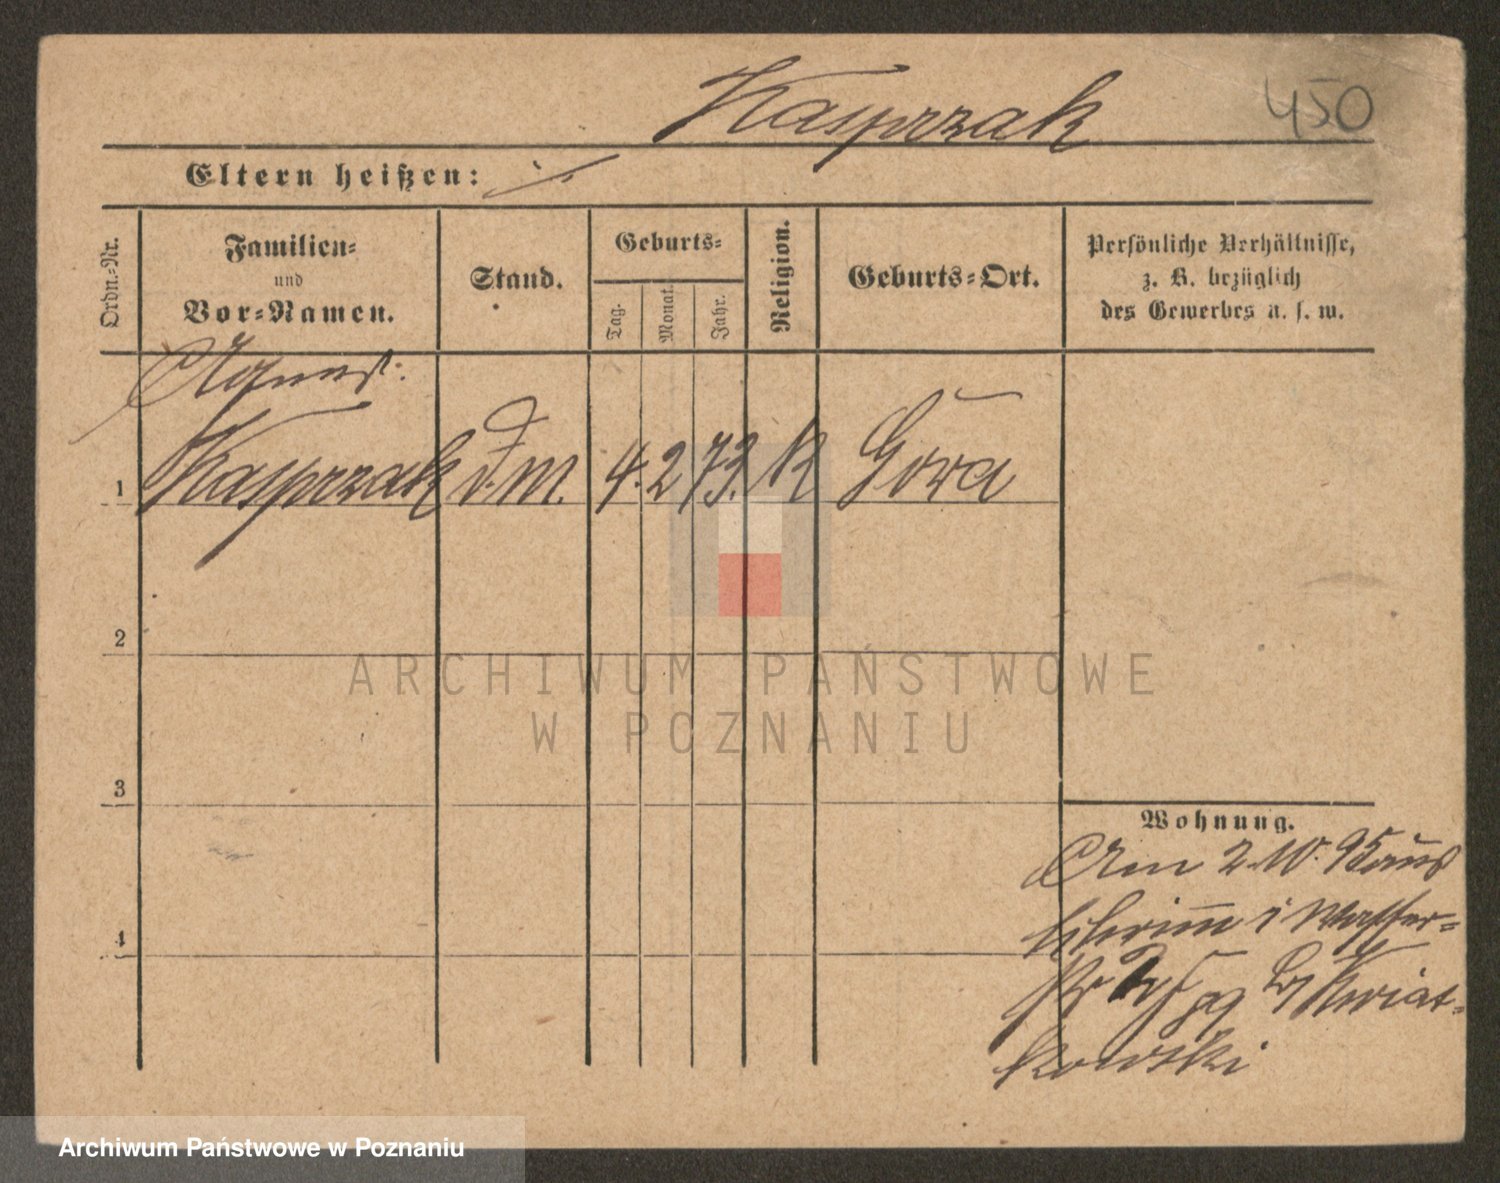 Kasprzak
450
Eltern heißen: ·/.
Ordn.-Nr.
Familien-
und
Vor-Namen.
Stand.
Geburts-
Tag.
Monat.
Jahr.
Religion.
Geburts-Ort.
Persönliche Verhältnisse,
z. B. bezüglich
des Gewerbes u. s. w.
Agnes
1 Kasprzak d. m. 4. 2 73. K Góra
2
ARCHIWUM PAŃSTWOWE
W POZNANIU
3
Wohnung.
Am 2.10.95 aus
Schrimm i Wasser-
str bj Kwiat-
kowski
4
Archiwum Państwowe w Poznaniu